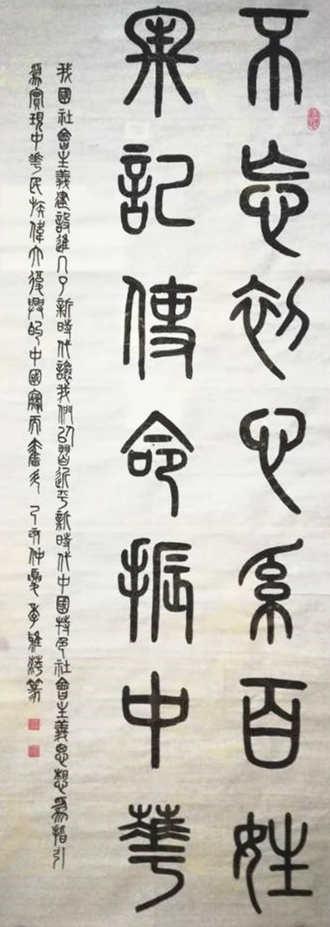 不忘初心系百姓
牢記使命振中華
我國社會主義建設進入了新時代讓我們以習近平新時代中國特色社會主義思想爲指引
爲實現中華民族偉大復興的中國夢而奮鬥 己亥仲夏 李雅篆